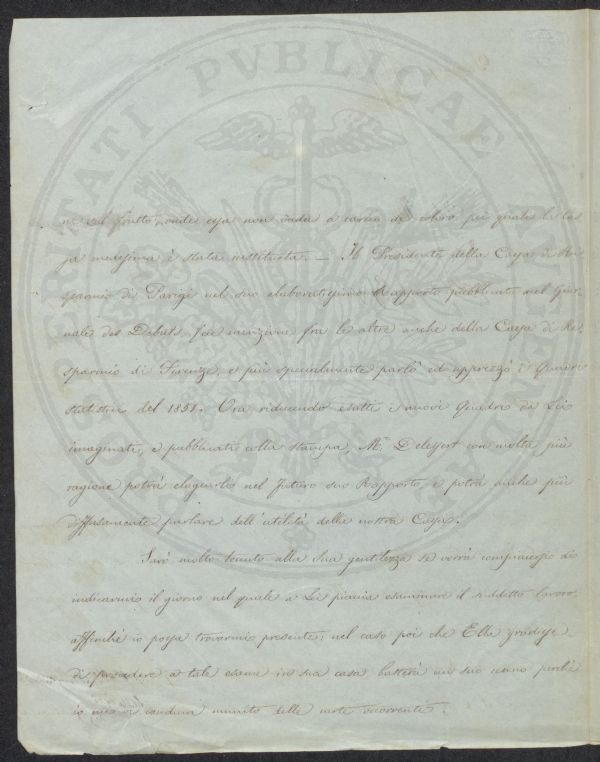 PROSPERITATI PVBLICAE
ne sul frutto, onde essa non vada a carico di coloro pei quali la Cas
sa medesima è stata instituita. — Il Presidente della Cassa di Ri
sparmio di Parigi nel suo elaboratissimo Rapporto pubblicato nel Gior
nale des Debats fece menzione fra le altre anche della Cassa di Ri
sparmio di Firenze, e più specialmente parlò ed apprezzò i Quadri
statistici del 1851. Ora riducendo esatti i nuovi Quadri da Lei
imaginati, e pubblicati colla stampa, Mr. Delessert con molta più
ragione potrà elogiarlo nel futuro suo Rapporto, e potrà anche più
diffusamente parlare dell'utilità della nostra Cassa.
Sarò molto tenuto alla sua gentilezza se vorrà compiacersi di
indicarmi il giorno nel quale a Lei piaccia esaminare il suddetto lavoro,
affinchè io possa trovarmi presente; nel caso poi che Ella gradisse
di procedere a tale esame in sua casa, basterà un suo cenno perchè
io mi vi conduca munito delle carte occorrenti.